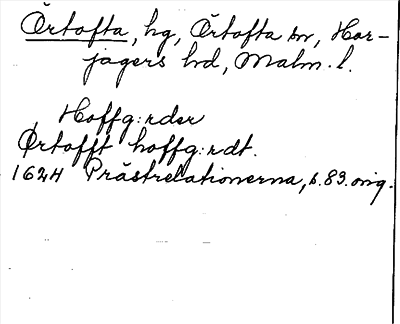 Örtofta, hg, Örtofta sn, Har-
jagers hd, Malm. l.
Hoffg:rder
Ørtofft hoffg:rdt.
1624 Prästrelationerna, s. 83. orig.